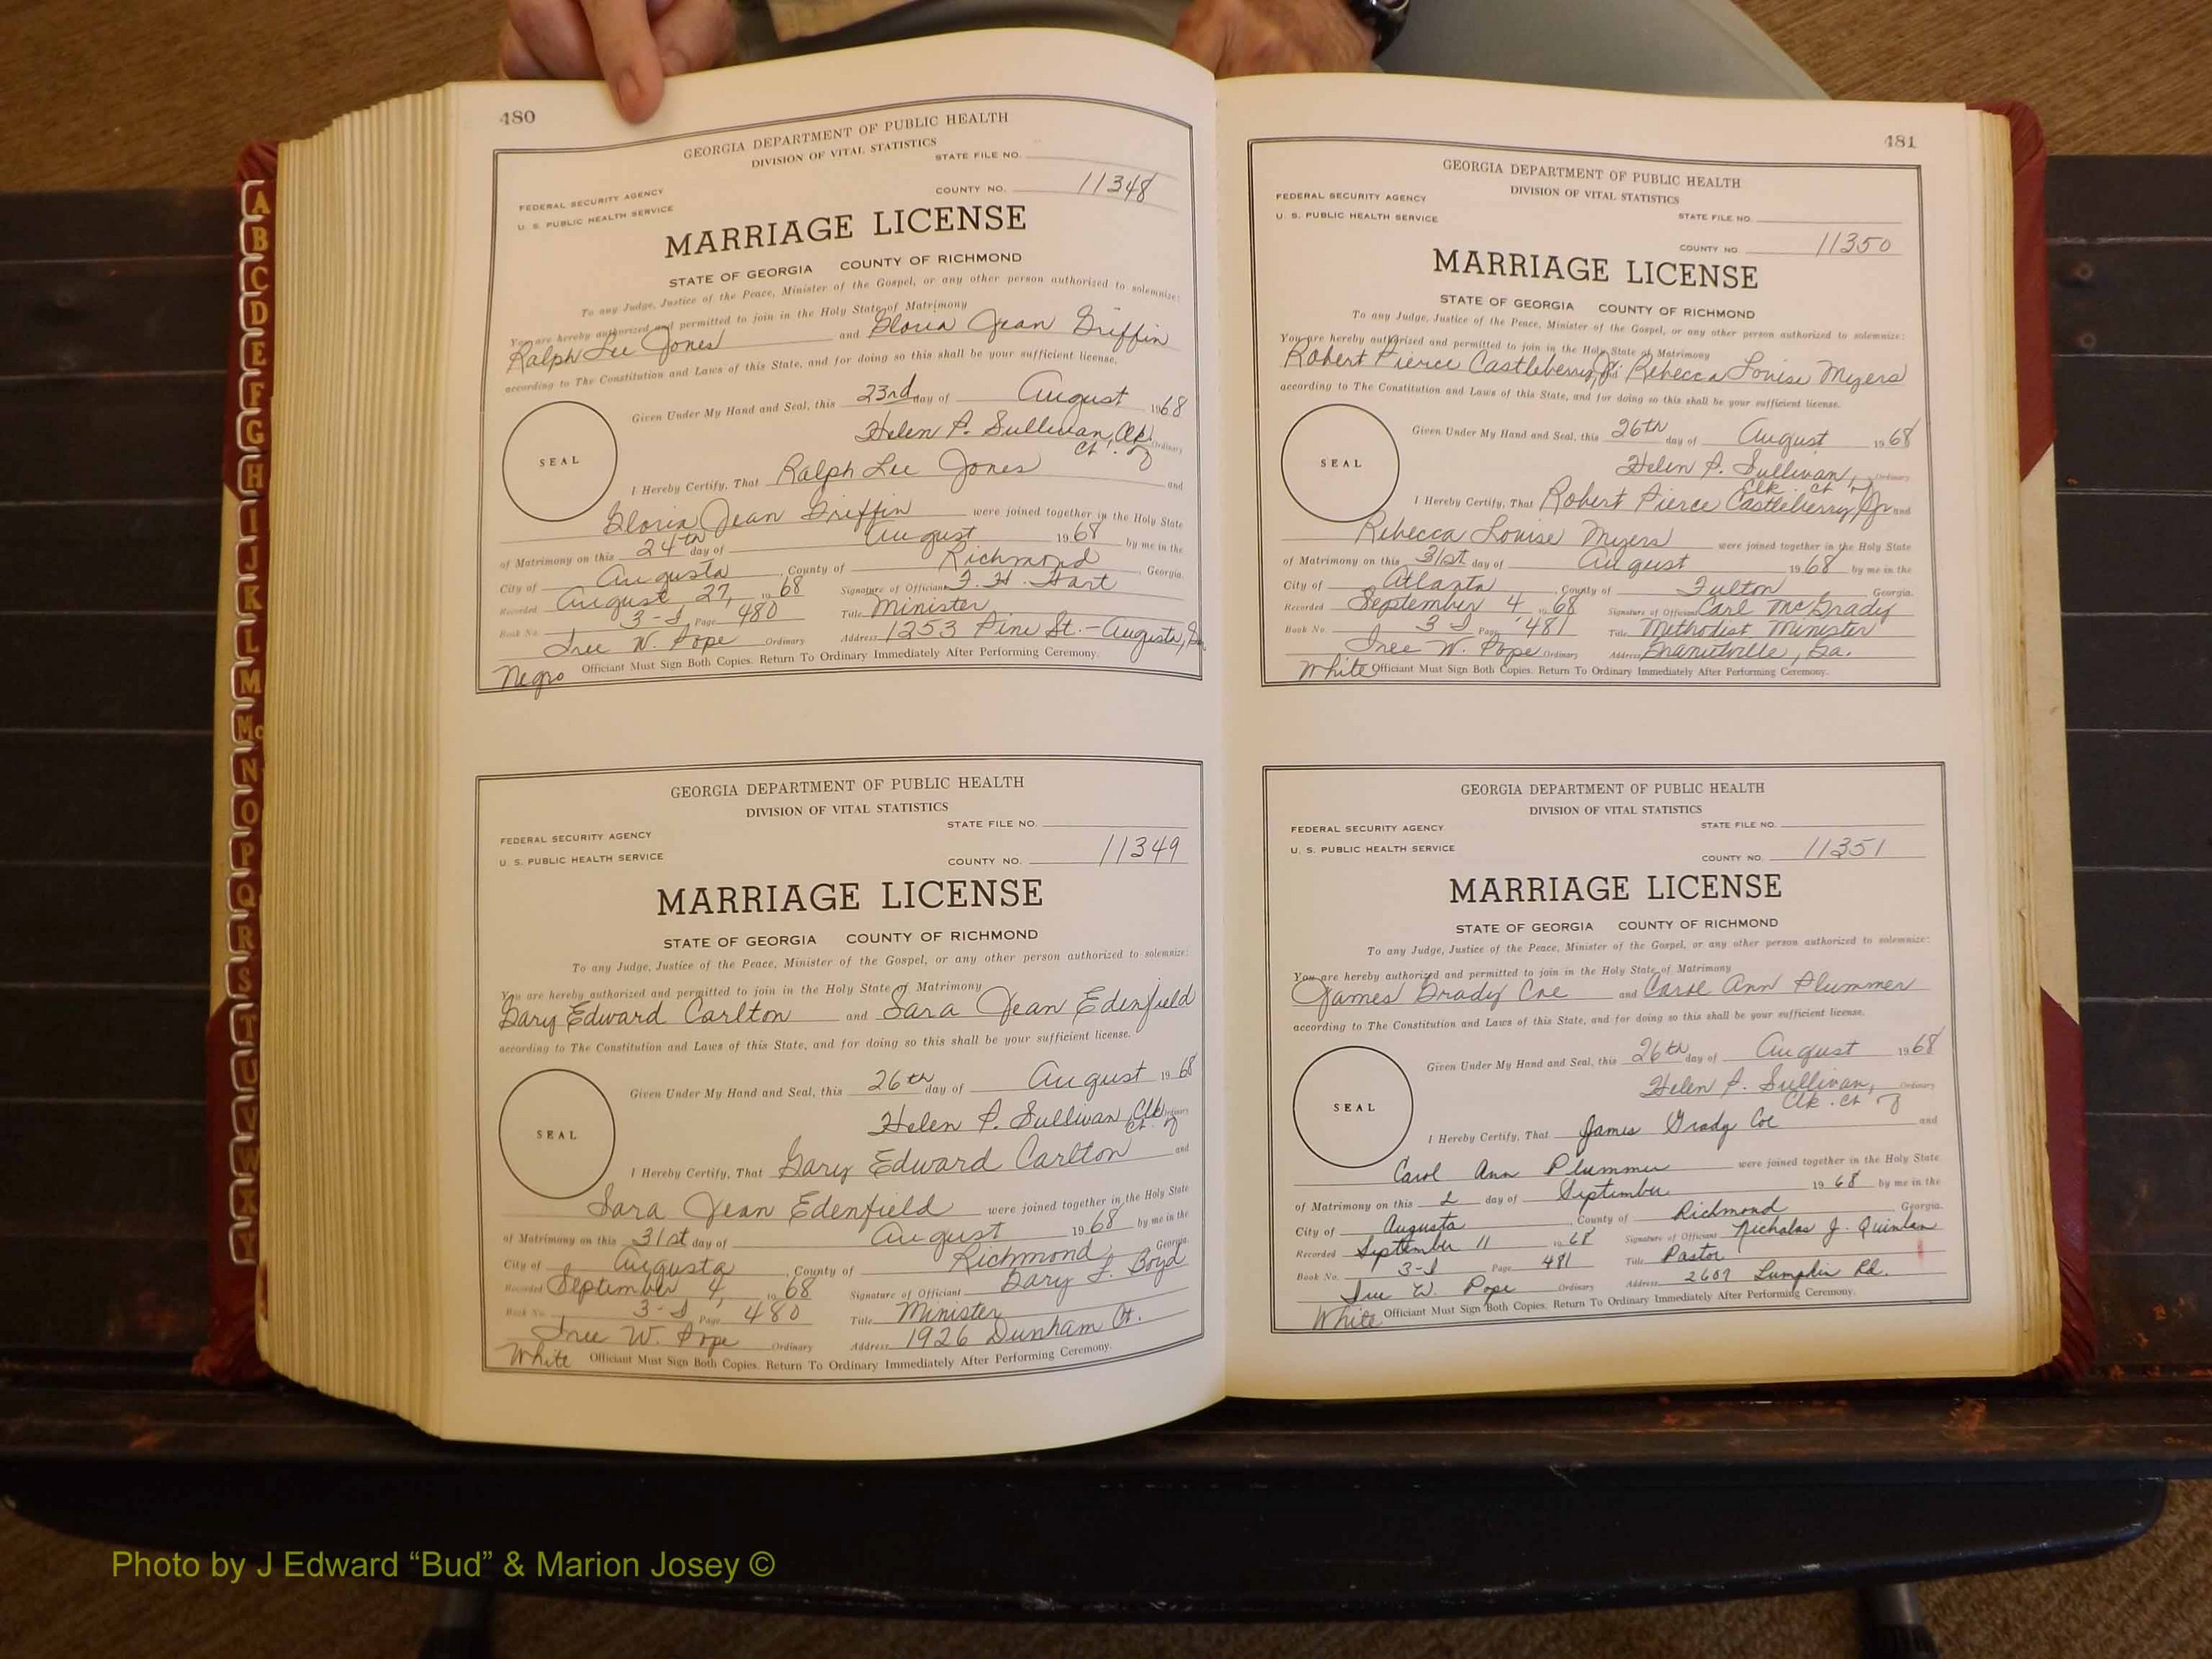 480
GEORGIA DEPARTMENT OF PUBLIC HEALTH
DIVISION OF VITAL STATISTICS
STATE FILE NO.
FEDERAL SECURITY AGENCY
COUNTY NO. 11348
U. S. PUBLIC HEALTH SERVICE
MARRIAGE LICENSE
STATE OF GEORGIA COUNTY OF RICHMOND
To any Judge, Justice of the Peace, Minister of the Gospel, or any other person authorized to solemnize:
You are hereby authorized and permitted to join in the Holy State of Matrimony
Ralph Lee Jones and Gloria Jean Griffin
according to The Constitution and Laws of this State, and for doing so this shall be your sufficient license.
Given Under My Hand and Seal, this 23rd day of August 1968
Helen P. Sullivan, Clk. Ordinary
Ct. of
SEAL
I Hereby Certify, That Ralph Lee Jones and
Gloria Jean Griffin were joined together in the Holy State
of Matrimony on this 24th day of August 1968 by me in the
City of Augusta, County of Richmond, Georgia.
Recorded August 27, 1968 Signature of Officiant Hart
Book No. 3-S Page 480 Title Minister
W. Pope Ordinary Address 1253 Pine St. - Augusta, Ga.
Officiant Must Sign Both Copies. Return To Ordinary Immediately After Performing Ceremony.
Negro
GEORGIA DEPARTMENT OF PUBLIC HEALTH
DIVISION OF VITAL STATISTICS
STATE FILE NO.
FEDERAL SECURITY AGENCY
U. S. PUBLIC HEALTH SERVICE
COUNTY NO. 11349
MARRIAGE LICENSE
STATE OF GEORGIA COUNTY OF RICHMOND
To any Judge, Justice of the Peace, Minister of the Gospel, or any other person authorized to solemnize:
You are hereby authorized and permitted to join in the Holy State of Matrimony
Gary Edward Carlton and Sara Jean Edenfield
according to The Constitution and Laws of this State, and for doing so this shall be your sufficient license.
Given Under My Hand and Seal, this 26th day of August 1968
Helen P. Sullivan, Clk. Ordinary
Ct. of
SEAL
I Hereby Certify, That Gary Edward Carlton and
Sara Jean Edenfield were joined together in the Holy State
of Matrimony on this 31st day of August 1968 by me in the
City of Augusta, County of Richmond, Georgia.
Recorded September 4, 1968 Signature of Officiant Gary L. Boyd
Book No. 3-S, Page 480 Title Minister
W. Pope Ordinary Address 1926 Dunham Ct.
White Officiant Must Sign Both Copies. Return To Ordinary Immediately After Performing Ceremony.
481
GEORGIA DEPARTMENT OF PUBLIC HEALTH
DIVISION OF VITAL STATISTICS
FEDERAL SECURITY AGENCY
U. S. PUBLIC HEALTH SERVICE
STATE FILE NO.
COUNTY NO. 11350
MARRIAGE LICENSE
STATE OF GEORGIA COUNTY OF RICHMOND
To any Judge, Justice of the Peace, Minister of the Gospel, or any other person authorized to solemnize:
You are hereby authorized and permitted to join in the Holy State of Matrimony
Robert Pierce Castleberry, Jr. and Rebecca Louise Myers
according to The Constitution and Laws of this State, and for doing so this shall be your sufficient license.
Given Under My Hand and Seal, this 26th day of August 1968
Helen P. Sullivan, Ordinary
Clk. Ct. of
SEAL
I Hereby Certify, That Robert Pierce Castleberry, Jr and
Rebecca Louise Myers were joined together in the Holy State
of Matrimony on this 31st day of August 1968 by me in the
City of Atlanta, County of Fulton, Georgia.
Recorded September 4 1968 Signature of Officiant Carl McGrady
Book No. 3 S Page 481 Title Methodist Minister
W. Pope Ordinary Address Graniteville, Ga.
White Officiant Must Sign Both Copies. Return To Ordinary Immediately After Performing Ceremony.
GEORGIA DEPARTMENT OF PUBLIC HEALTH
DIVISION OF VITAL STATISTICS
FEDERAL SECURITY AGENCY
STATE FILE NO.
U. S. PUBLIC HEALTH SERVICE
COUNTY NO. 11351
MARRIAGE LICENSE
STATE OF GEORGIA COUNTY OF RICHMOND
To any Judge, Justice of the Peace, Minister of the Gospel, or any other person authorized to solemnize:
You are hereby authorized and permitted to join in the Holy State of Matrimony
James Grady Coe and Carol Ann Plummer
according to The Constitution and Laws of this State, and for doing so this shall be your sufficient license.
Given Under My Hand and Seal, this 26th day of August 1968
Helen P. Sullivan, Ordinary
Clk. Ct. of
SEAL
I Hereby Certify, That James Grady Coe and
Carol Ann Plummer were joined together in the Holy State
of Matrimony on this 2 day of September 1968 by me in the
City of Augusta, County of Richmond Georgia.
Recorded September 11 1968 Signature of Officiant Nicholas J. Quinlan
Book No. 3-S Page 481 Title Pastor
W. Pope Ordinary Address 2607 Lumpkin Rd.
White Officiant Must Sign Both Copies. Return To Ordinary Immediately After Performing Ceremony.
A
B
C
D
E
F
G
H
I
J
K
L
M
Mc
N
O
P
Q
R
S
T
U
V
W
X
Y
Photo by J Edward “Bud” & Marion Josey ©